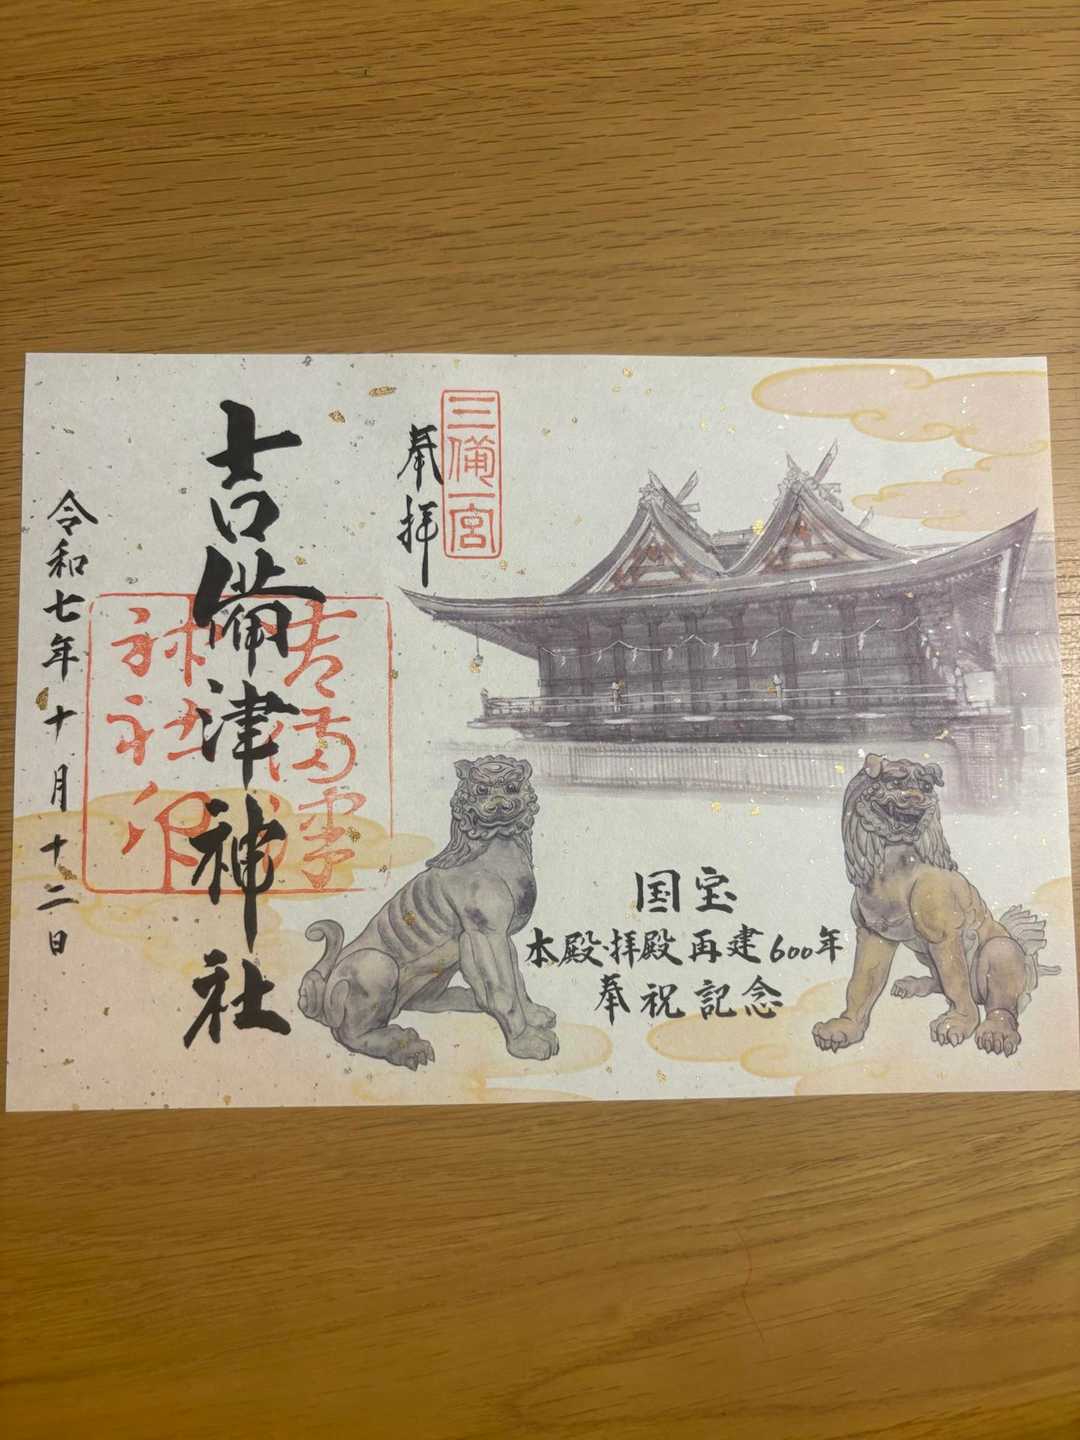 三備一宮
奉拝
吉備津神社
吉備津
神社印
令和七年十月十二日
国宝
本殿・拝殿再建600年
奉祝記念